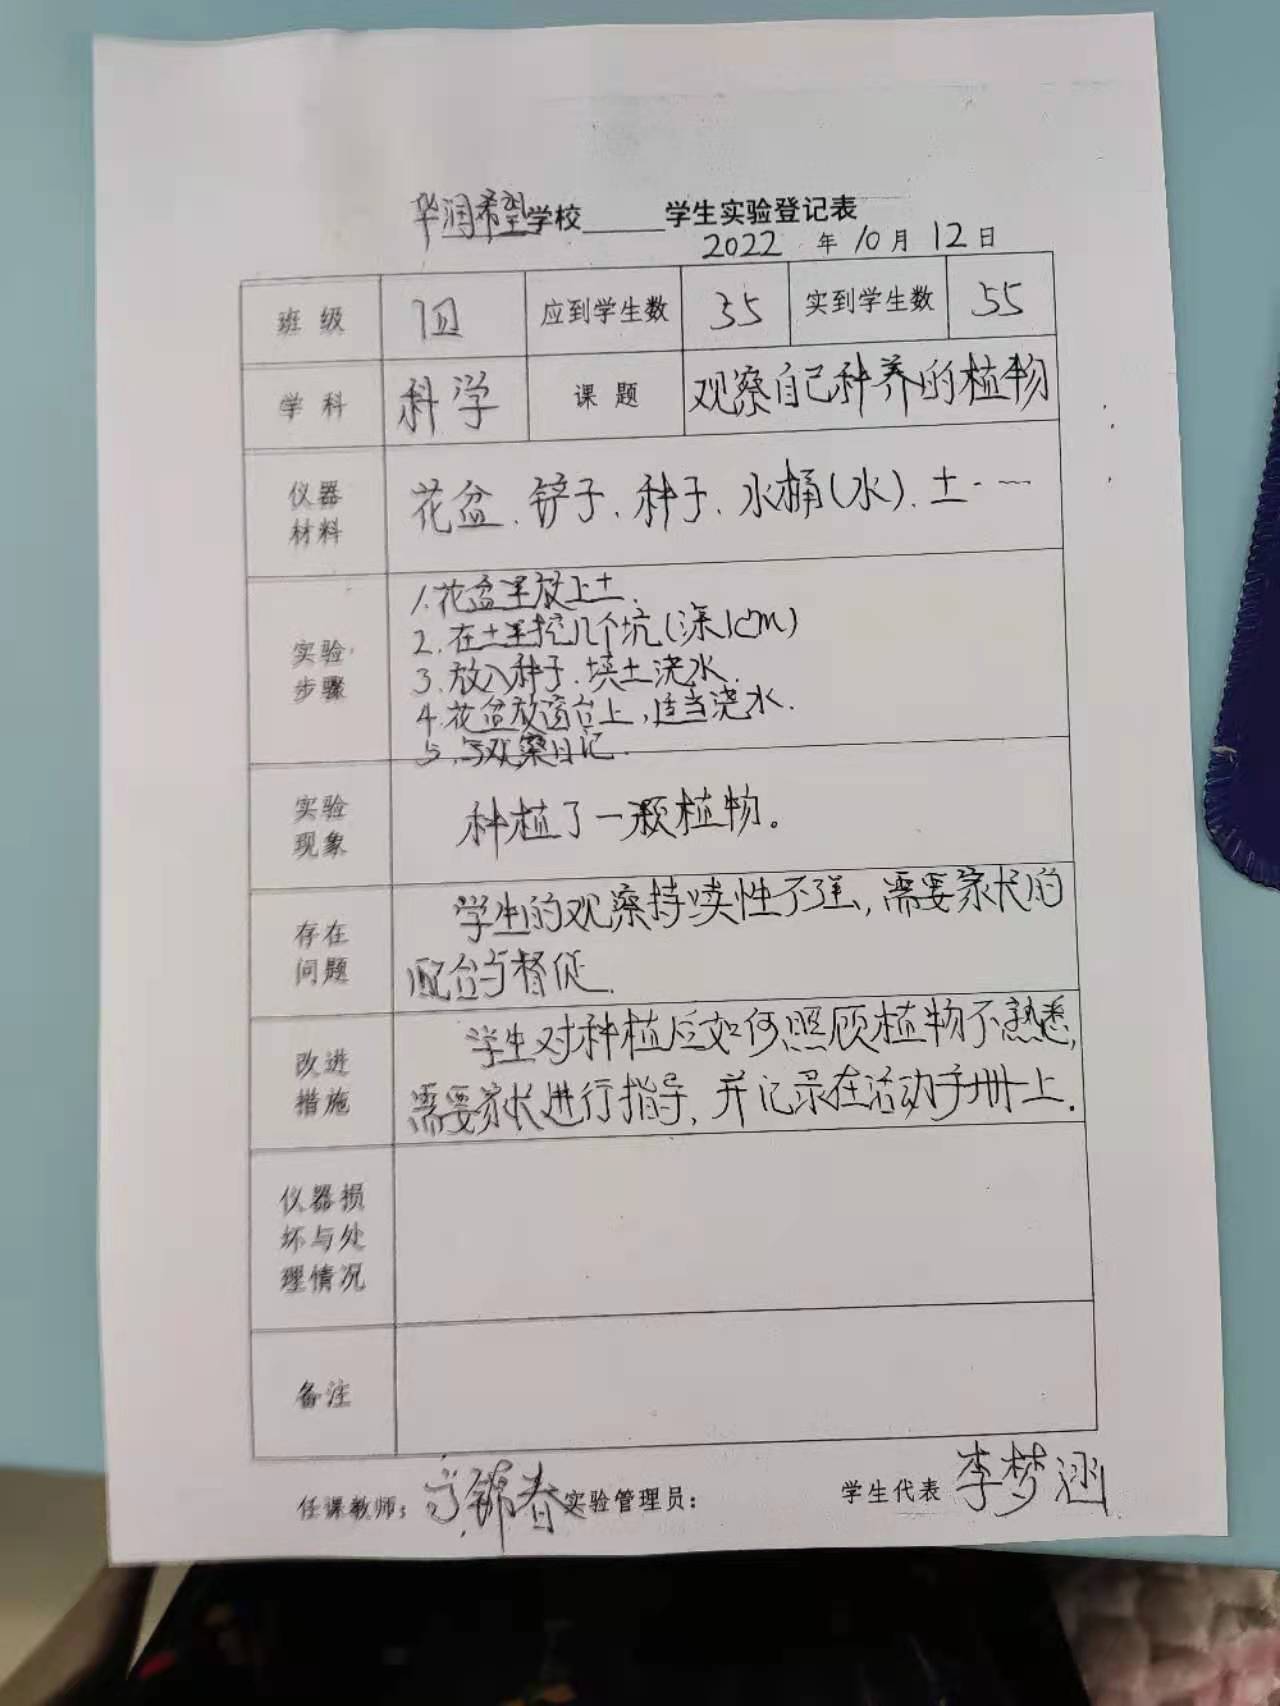 华润希望学校_____学生实验登记表
2022 年 10 月 12 日
班级 应到学生数 35 实到学生数 55
学科 科学 课题 观察自己种养的植物
仪器材料 花盆、铲子、种子、水桶(水)、土……
实验步骤 1.花盆里放上土.
2.在土里挖几个坑(深1cm)
3.放入种子.填土浇水.
4.花盆放窗台上,适当浇水.
5.写观察日记.
实验现象 种植了一颗植物。
存在问题 学生的观察持续性不强,需要家长的
配合与督促.
改进措施 学生对种植后如何照顾植物不熟悉,
需要家长进行指导,并记录在活动手册上.
仪器损坏与处理情况
备注
任课教师: 锦春 实验管理员: 学生代表 李梦涵